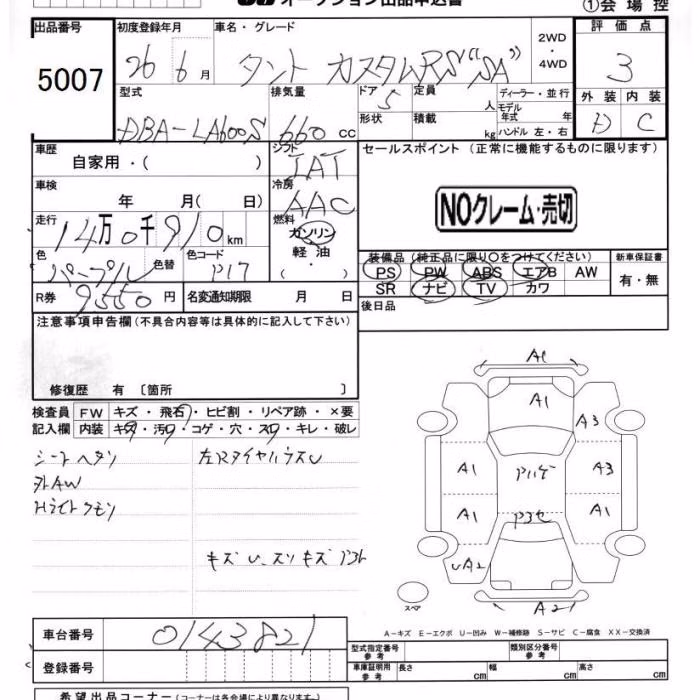 オークション出品申込書 ①会場控
出品番号 初度登録年月 車名・グレード 2WD・4WD 評価点
5007 26年6月 タント カスタムRS“SA” 3
型式 排気量 ドア 定員 人 ディーラー・並行 外装 内装
DBA-LA600S 660cc 5 形状 積載 kg モデル年式 年 ハンドル 左・右 D C
車歴 自家用・( ) シフト IAT セールスポイント (正常に機能するものに限ります)
車検 年 月( 日) 冷房 AAC
NOクレーム・売切
走行 14万0千910km 燃料 ガソリン 軽油・
色 パープル 色替 色コード P17
装備品(純正品に限り○をつけてください) 新車保証書
PS PW ABS エアB AW 有・無
SR ナビ TV カワ
R券 9550円 名変通知期限 月 日 後日品
注意事項申告欄(不具合内容等は具体的に記入して下さい)
修復歴 有〔箇所 〕
検査員 FW キズ・飛石・ヒビ割・リペア跡・×要
記入欄 内装 キズ・汚れ・コゲ・穴・スレ・キレ・破レ
シートヘタリ
外AW
Hライトクモリ
キズ U、スリキズ
A1
A1
A3
A1 A3
A1 A1
UA2
A21
スペア
A-キズ E-エクボ U-凹み W-補修跡 S-サビ C-腐食 XX-交換済
車台番号 0143821
型式指定番号 参考 類別区分番号 参考
登録番号 車庫証明用 参考 長さ cm 幅 cm 高さ cm
希望出品コーナー(コーナーは各会場により異なります)